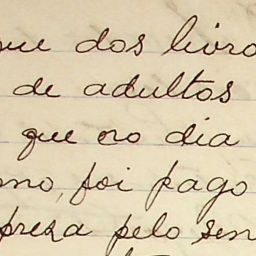 que dos livro
de adultos
que no dia
mo, foi pago
preza pelo sen